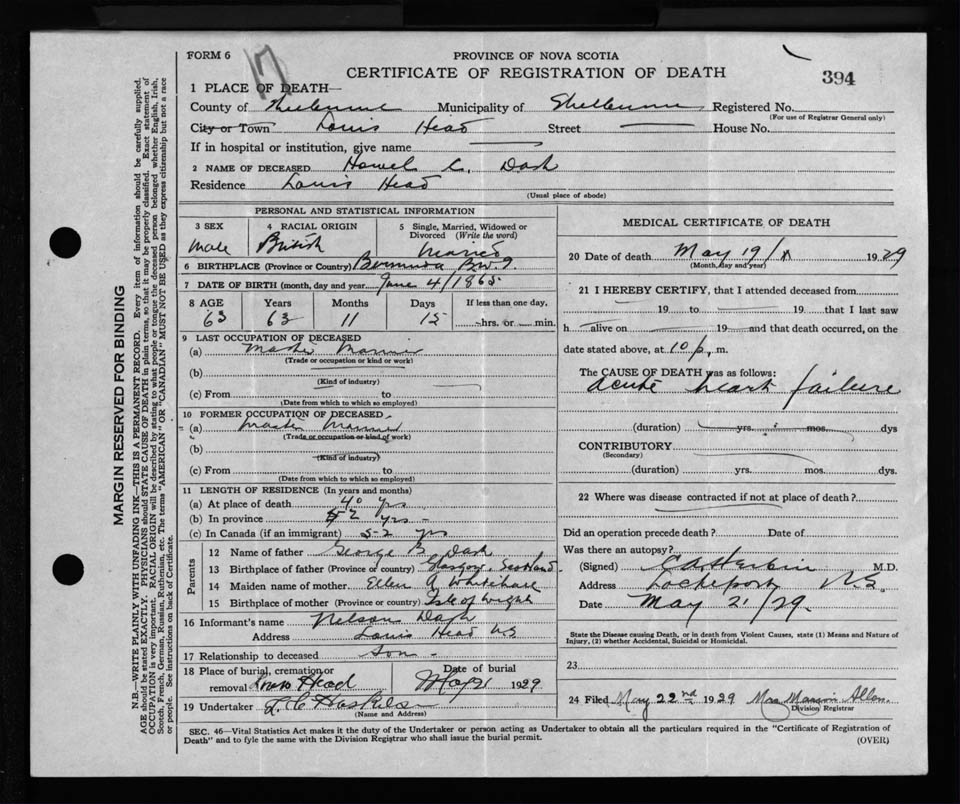 FORM 6
17
PROVINCE OF NOVA SCOTIA
CERTIFICATE OF REGISTRATION OF DEATH
394
1 PLACE OF DEATH—
County of Shelburne Municipality of Shelburne Registered No.
(For use of Registrar General only)
City or Town Louis Head Street House No.
If in hospital or institution, give name
2 NAME OF DECEASED Howel C. Dash
Residence Louis Head
(Usual place of abode)
PERSONAL AND STATISTICAL INFORMATION
3 SEX 4 RACIAL ORIGIN 5 Single, Married, Widowed or Divorced (Write the word)
Male British Married
6 BIRTHPLACE (Province or Country) Bermuda B.W.I.
7 DATE OF BIRTH (month, day and year) June 4/1865
8 AGE Years Months Days If less than one day,
63 63 11 15 hrs. or min.
9 LAST OCCUPATION OF DECEASED
(a) Master Mariner
(Trade or occupation or kind or work)
(b)
(Kind of industry)
(c) From to
(Date from which to which so employed)
10 FORMER OCCUPATION OF DECEASED
(a) Master Mariner
(Trade or occupation or kind of work)
(b)
(Kind of industry)
(c) From to
(Date from which to which so employed)
11 LENGTH OF RESIDENCE (In years and months)
(a) At place of death 40 yrs
(b) In province 52 yrs
(c) In Canada (if an immigrant) 52 yrs
Parents
12 Name of father George B. Dash
13 Birthplace of father (Province or country) Glasgow Scotland
14 Maiden name of mother Ellen A Whitehare
15 Birthplace of mother (Province or country) Isle of Wright
16 Informant's name Nelson Dash
Address Louis Head NS
17 Relationship to deceased Son
18 Place of burial, cremation or removal Louis Head Date of burial May 21 1929
19 Undertaker
(Name and Address)
MEDICAL CERTIFICATE OF DEATH
20 Date of death May 19/ 1929
(Month, day and year)
21 I HEREBY CERTIFY, that I attended deceased from
19 to 19 that I last saw
h alive on 19 and that death occurred, on the
date stated above, at 10 p. m.
The CAUSE OF DEATH was as follows:
acute heart failure
(duration) yrs. mos. dys
CONTRIBUTORY
(Secondary)
(duration) yrs. mos. dys.
22 Where was disease contracted if not at place of death?
Did an operation precede death? Date of
Was there an autopsy?
(Signed) M.D.
Address Lockeport N.S.
Date May 21/29.
State the Disease causing Death, or in death from Violent Causes, state (1) Means and Nature of
Injury, (2) whether Accidental, Suicidal or Homicidal.
23
24 Filed May 22nd 1929 Mrs Allen
Division Registrar
SEC. 46—Vital Statistics Act makes it the duty of the Undertaker or person acting as Undertaker to obtain all the particulars required in the "Certificate of Registration of
Death" and to fyle the same with the Division Registrar who shall issue the burial permit.
(OVER)
MARGIN RESERVED FOR BINDING
N.B.—WRITE PLAINLY WITH UNFADING INK—THIS IS A PERMANENT RECORD. Every item of information should be carefully supplied.
AGE should be stated EXACTLY. PHYSICIANS should STATE CAUSE OF DEATH in plain terms, so that it may be properly classified. Exact statement of
OCCUPATION is very important. RACIAL ORIGIN will be described by stating to what people or tongue the deceased person belonged whether English, Irish,
Scotch, French, German, Russian, Ruthenian, etc. The terms "AMERICAN" OR "CANADIAN" MUST NOT BE USED as they express citizenship but not a race
or people. See instructions on back of Certificate.